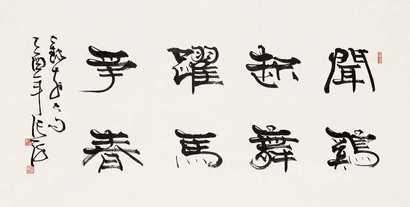 聞鷄
起舞
躍馬
爭春
乙酉年